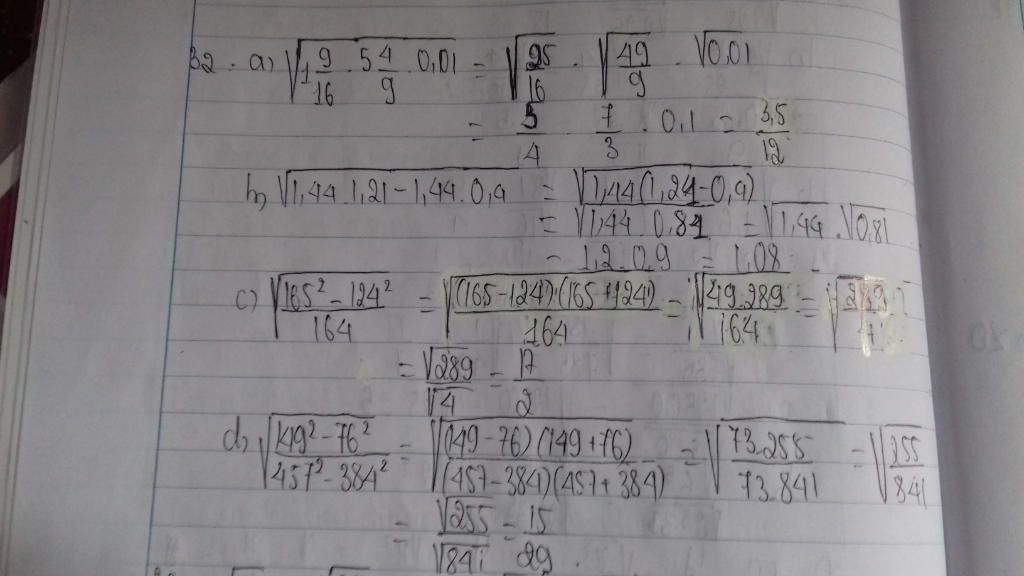 32. a) √(1 9/16 . 5 4/9 . 0,01) = √(25/16) . √(49/9) . √0,01
= 5/4 . 7/3 . 0,1 = 3,5/12
b) √(1,44.1,21 - 1,44.0,4) = √(1,44(1,21-0,4))
= √(1,44.0,81) = √1,44 . √0,81
= 1,2.0,9 = 1,08
c) √((165² - 124²)/164) = √((165-124).(165+124)/164) = √(49.289/164) = √(289/4)
= √289/√4 = 17/2
d) √((149² - 76²)/(457² - 384²)) = √((149-76)(149+76)/(457-384)(457+384)) = √(73.255/73.841) = √(255/841)
= √255/√841 = 15/29.